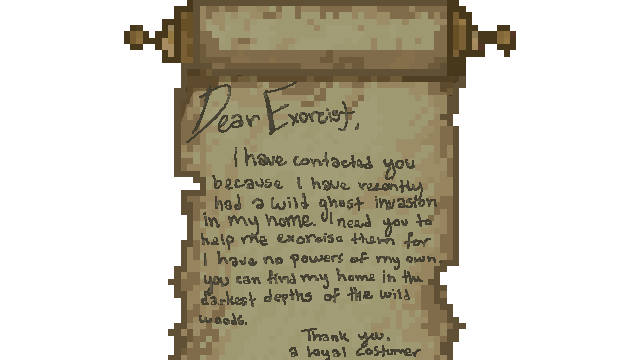 Dear Exorcist,
I have contacted you
because I have recently
had a wild ghost invasion
in my home. I need you to
help me exorcise them for
I have no powers of my own.
you can find my home in the
darkest depths of the wild
woods.
Thank you.
a loyal costumer